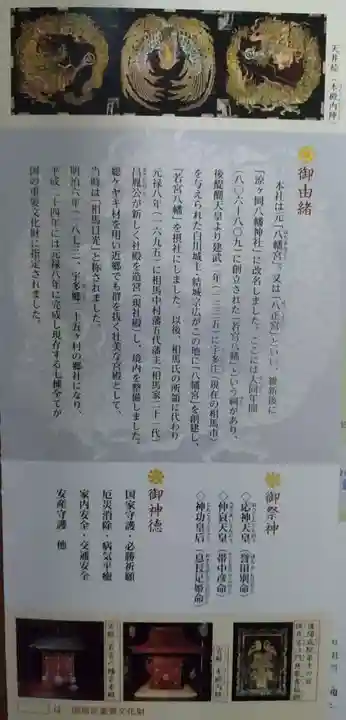 天井絵（本殿内陣）
御由緒
本社は元「八幡宮」又は「八正宮」といい、維新後に
「涼ヶ岡八幡神社」に改名しました。ここには大同年間
（八〇六～八〇九）に創立された「若宮八幡」という祠があり、
後醍醐天皇より建武二年（一三三五）に宇多庄（現在の相馬市）
を与えられた白川城主・結城宗広がこの地に「八幡宮」を創建し、
「若宮八幡」を摂社にしました。以後、相馬氏の所領に代わり
元禄八年（一六九五）に相馬中村藩五代藩主（相馬家二十一代）
昌胤公が新しく社殿を造営（現社殿）し、境内を整備しました。
総ケヤキ材を用い近郷でも群を抜く壮美な宮殿として、
当時は「相馬日光」と称されました。
明治六年（一八七三）、宇多郷三十五ヶ村の郷社になり、
平成二十四年には元禄八年に完成し現存する七棟全てが
国の重要文化財に指定されました。
御祭神
◇応神天皇（誉田別命）
◇仲哀天皇（帯中彦命）
◇神功皇后（息長足姫命）
御神徳
国家守護・必勝祈願
厄災消除・病気平癒
家内安全・交通安全
安産守護　他
は 国指定重要文化財